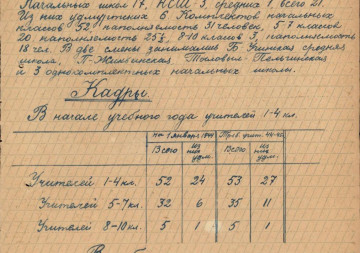 Начальных школ 17, НСШ 3, средних 1, всего 21
Из них удмуртских 6. Комплектов начальных
классов 52 наполняемость 31 человек, 5-7 классов
20 наполняемость 25, 8-10 классов 3, наполняемость
18 чел. В две смены занимались Б-Учинская средняя
школа, и 3 однокомплектных начальных школы.
Кадры.
В начале учебного года учителей 1-4 кл.
на 1 января 1944 Треб. учит. 44-45
Всего из них удм. Всего из них удм.
Учителей 1-4 кл. 52 24 53 27
Учителей 5-7 кл. 32 6 35 11
Учителей 8-10 кл. 5 1 5 1